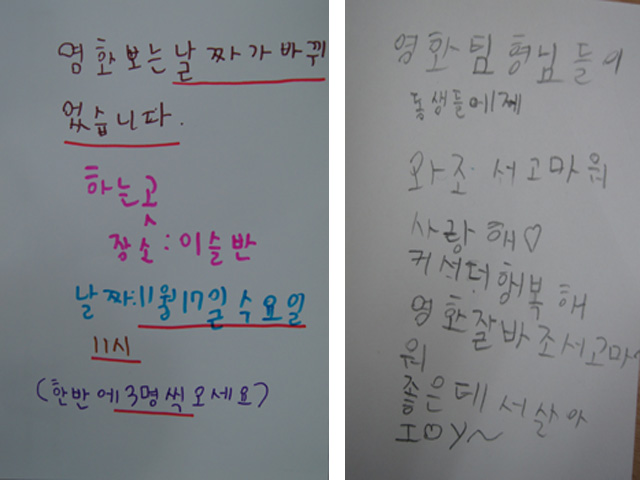 영화보는날짜가바뀌
었습니다.
하는곳
장소:이슬반
날짜:11월17일수요일
11시
(한반에3명씩오세요)
영화팀형님들이
동생들에게
와조서고마워
사랑해♡
커서더행복해
영화잘바조서고마
워
좋은데서살아
I♡y~